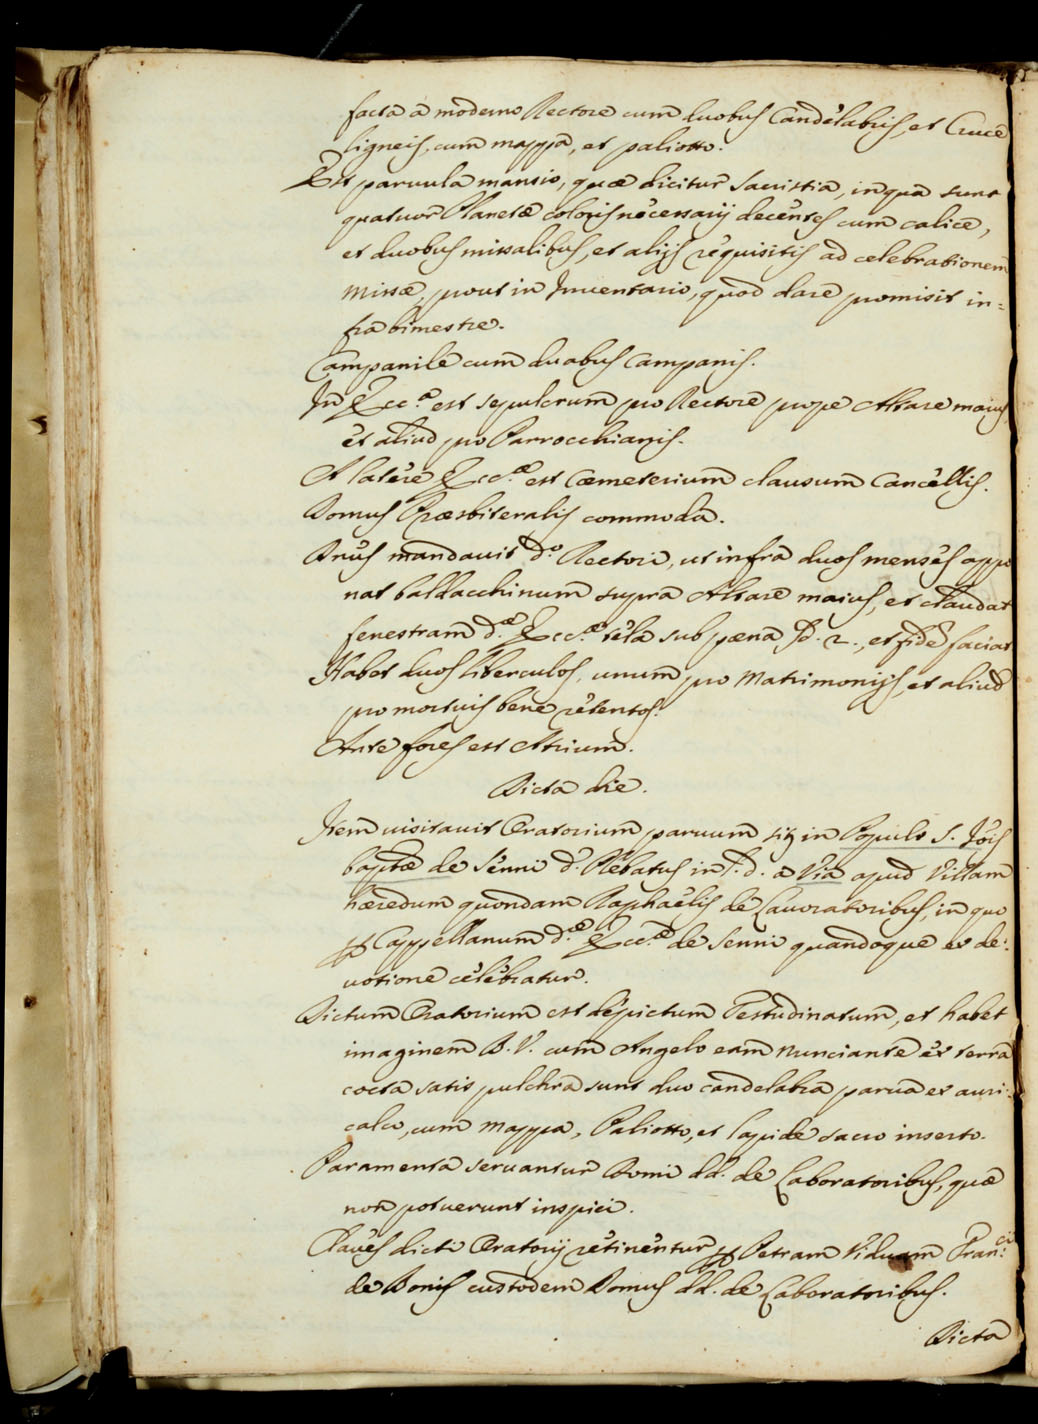 facta a moderno Rectore cum duobus Candelabris, et Cruce
ligneis, cum mappa, et paliotto.
Est parvula mansio, quæ dicitur Sacristia, in qua sunt
quatuor Planetæ coloris necessarij decentes cum calice,
et duobus missalibus, et alijs requisitis ad celebrationem
Missæ, prout in Inventario, quod dare promisit in=
fra bimestre.
Campanile cum duabus Campanis.
In Ecc.ª est sepulcrum pro Rectore prope Altare maius,
et aliud pro Parrocchianis.
A latere Ecc.æ est Cæmeterium clausum Cancellis.
Domus Præsbiteralis commoda.
Dnus mandavit d.º Rectori, ut infra duos menses appo
nat baldacchinum supra Altare maius, et claudat
fenestram d.æ Ecc.æ tela sub pæna 2., et fidē faciat
Habet duos liberculos, unum pro Matrimonijs, et aliud
pro mortuis bene retentos.
Ante fores est Atrium.
Dicta die.
Item visitavit Oratorium parvum in Populo S. Jōis
baptæ de Senni d. Plebatus in l. d. a Via apud Villam
hæredum quondam Raphaelis de Lavoratoribus, in quo
p Cappellanum d.æ Ecc.æ de Senni quandoque ex de:
votione celebratur.
Dictum Oratorium est depictum Testudinatum, et habet
imaginem B. V. cum Angelo eam nunciante ex terra
cocta satis pulchra sunt duo candelabra parva ex auri:
calco, cum Mappa, Paliotto, et lapide sacro inserto.
Paramenta servantur Domi dd. de Laboratoribus, quæ
non potuerunt inspici.
Claves dicti Oratorij retinentur p Petram Viduam Fran:ci
de Bonis custodem Domus dd. de Laboratoribus.
Dicta